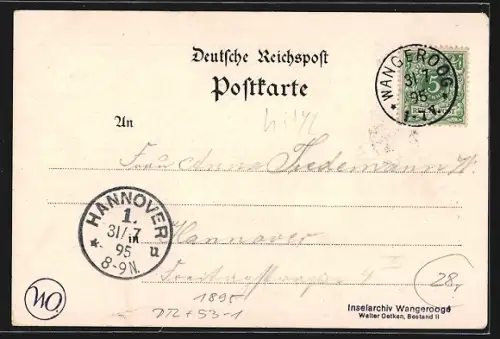 Deutsche Reichspost
Postkarte
WANGEROOG
31/7
95
1-7N.
5
An
Frau Anna Tiedemann W.
HANNOVER
1.
31/.7
95
8-9N.
Hannover
28,
1895
Inselarchiv Wangerooge
Walter Oetken, Bestand II